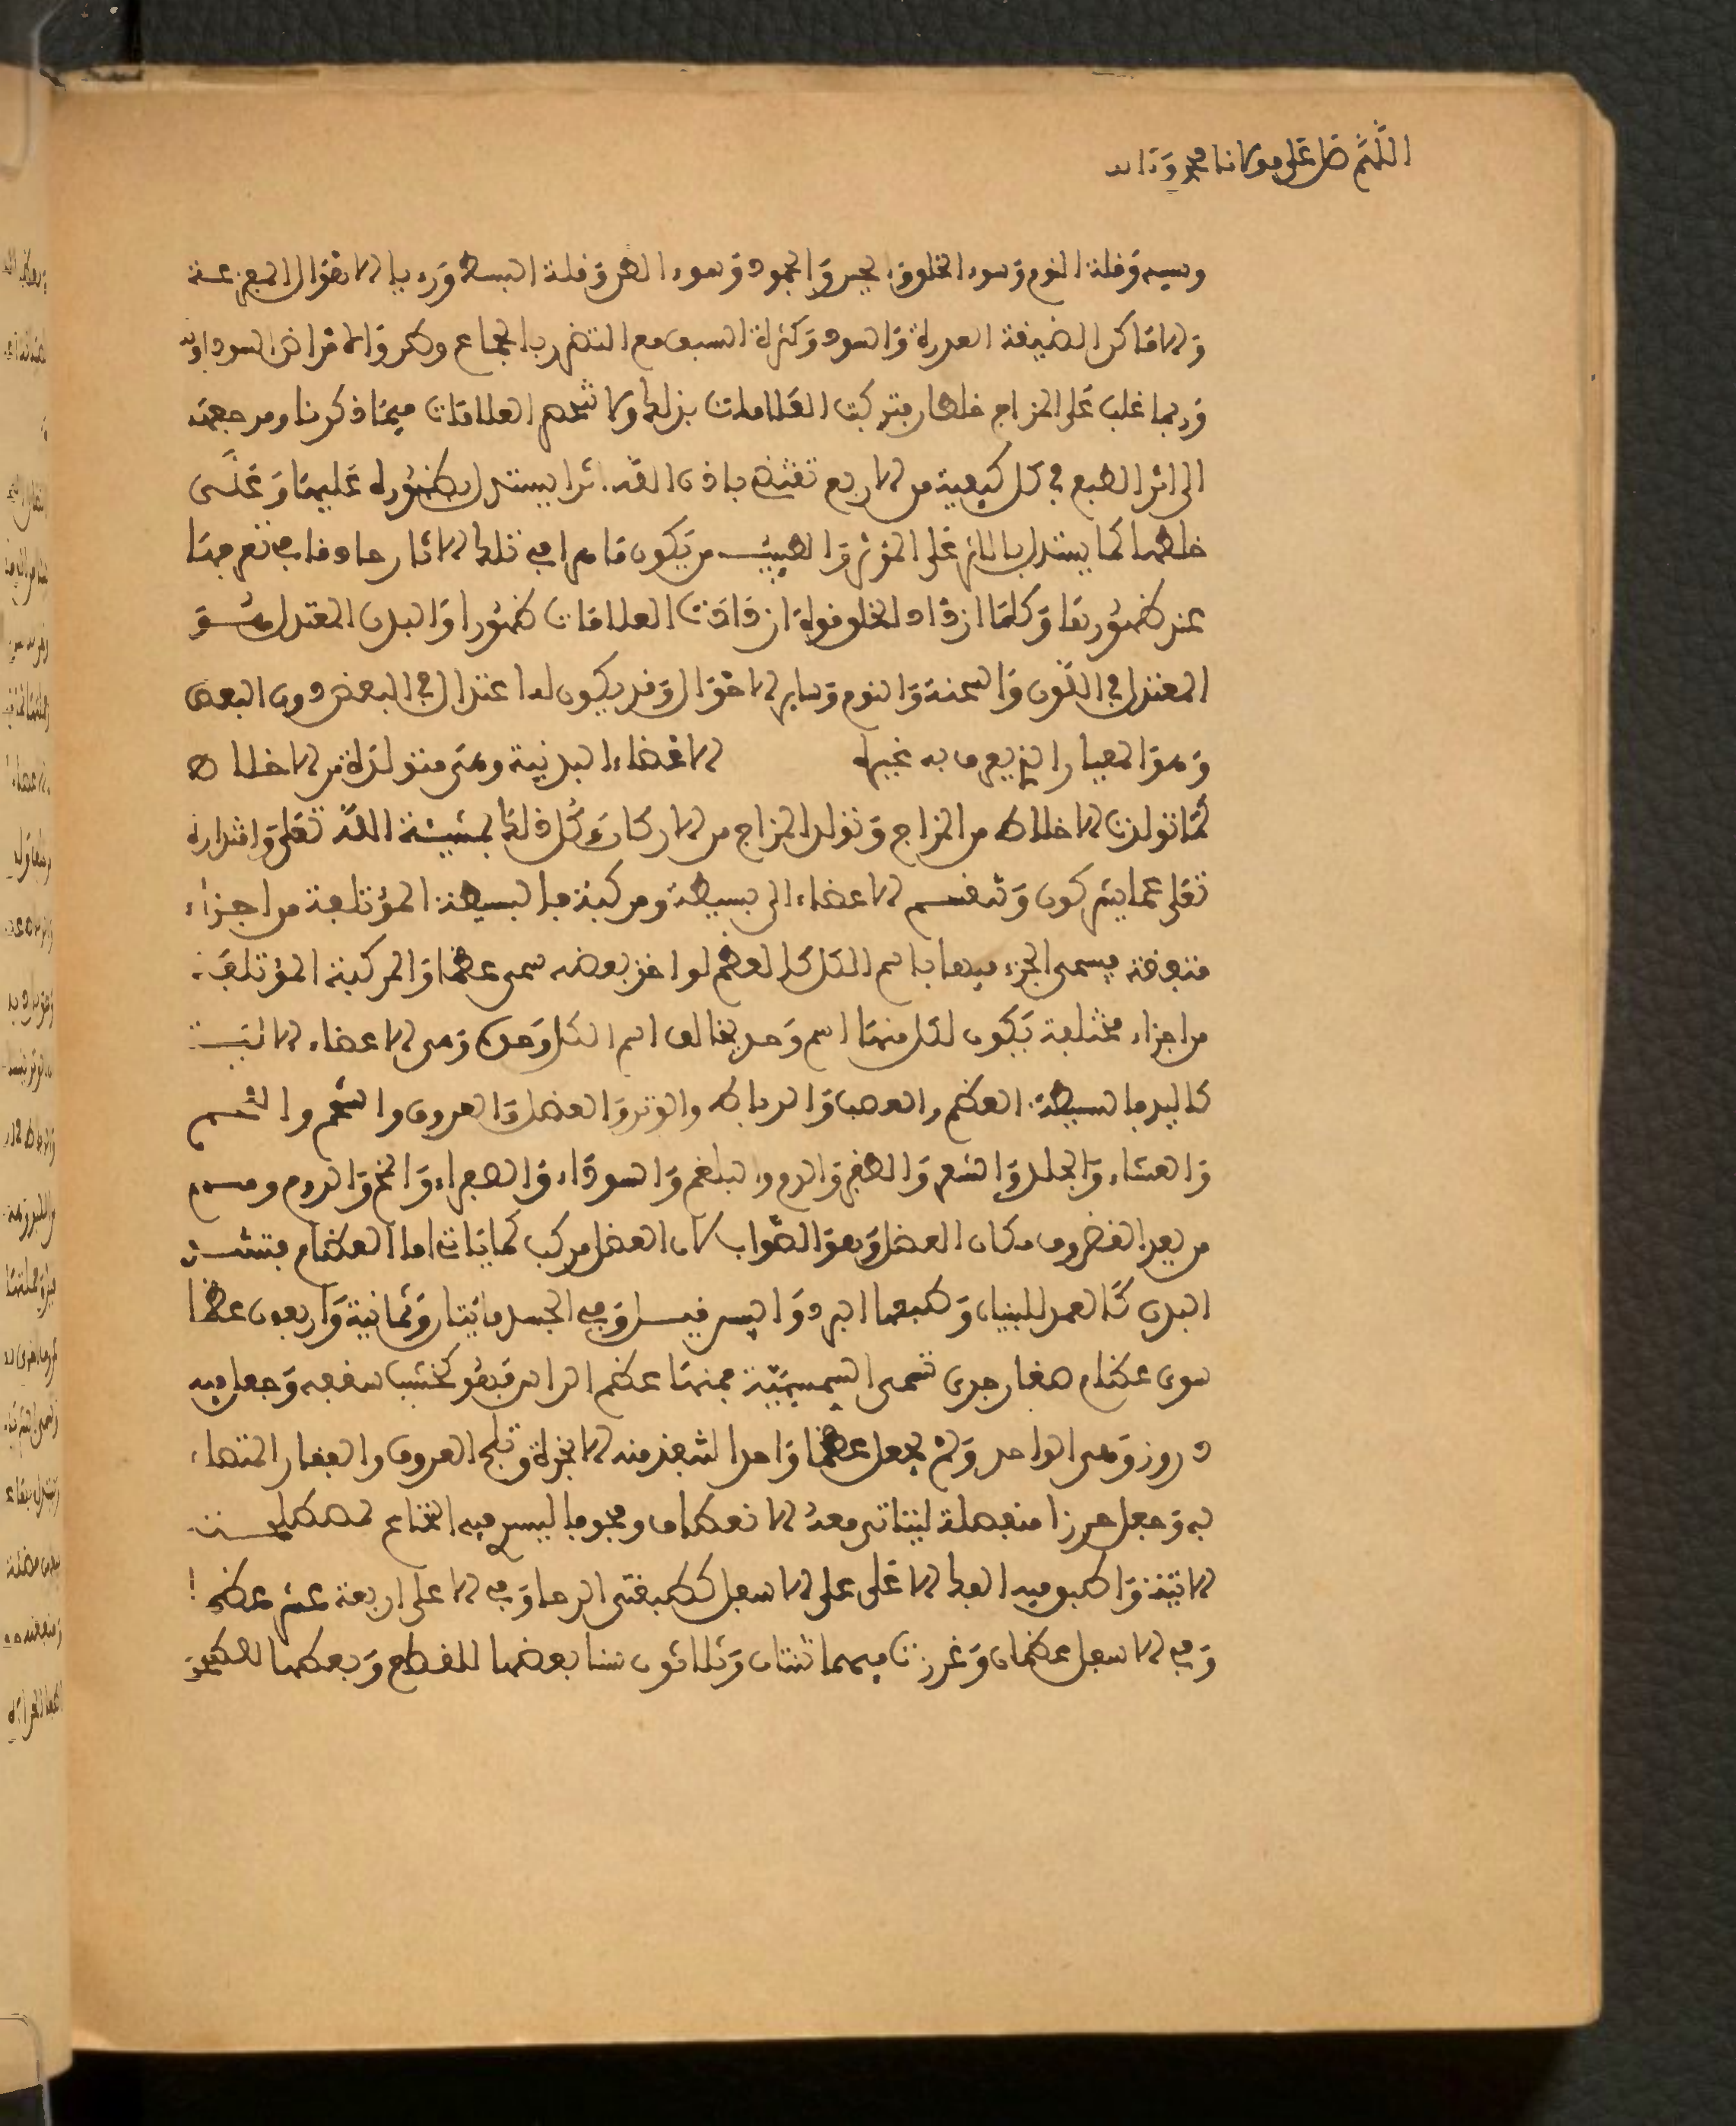 اللهم صل على مولانا محمد وءاله
وقلة النوم وسوء الخلق والجمود وسوء الظن وقلة البسط ورءيا الاهوال المفزعة
والاماكن الضيقة والسود وكثرة مع التضرر بالجماع والامراض السوداوية
وربما غلب على المزاج خلطان فتركب العلامات بذلك ولا تنحصر العلامات فيما ذكرنا ومرجعه
الى اثر الطبع في كل كيفية من الاربع تقتضي باذن الله اثرا يستدل بظهوره عليها وعلى
خلطها كما يستدل بالاثر على المؤثر والطبيب من يكون ماهرا في تلك الاثار حاذقا في تعرفها
عند ظهورها وكلما ازداد الخلط قوة ازدادت العلامات ظهورا والبدن المعتدل هو
المعتدل في اللون والسحنة والنوم وساير الاحوال وقد يكون له اعتدال في البعض دون البعض
وهو المعيار الذي يعرف به غيره الاعضاء البدنية وهي متولدة من الاخلاط
كما تولدت الاخلاط من المزاج وتولد المزاج من الاركان كل ذلك بمشيئة الله تعلى واقتداره
تعلى عما يشركون وتنقسم الاعضاء الى بسيطة ومركبة فالبسيطة المؤتلفة من اجزاء
متفقة فيسمى الجزء فيها باسم الكل كالعظم لو اخذ بعضه سمى عظما والمركبة المؤتلفة
من اجزاء مختلفة يكون لكل منها اسم وحده يخالف اسم الكل وحده وهي الاعضاء الالية
كاليد فالبسيطة العظم والعصب والرباط والوتر والعضل والعروق واللحم والشحم
والغشاء والجلد والشعر والظفر والدم والبلغم والسوداء والصفراء والمخ والروح ومنهم
من يعد الغضروف مكان العضل وهو الصواب لان العضل مركب كما ياتي اما العظام فتشد
البدن كالعمد للبنيان وطبعها البرد واليبس وفي الجسد مايتان وثمانية واربعون عظما
سوى عظام صغار جدى تسمى السمسمية فمنها عظم الراس فهو كخشب سقف وجعل فيه
دروز وهي الواحد ولم يجعل عظما واحدا لتنفذ منه الابخرة وتلج العروق والفقار المتصلة
به وجعل خرزا منفصلة ليتاتى معه الانعطاف ومجوفا ليسير فيه النخاع
واطبق فيه الفك الاعلى على الاسفل كطبقتي الرحا وفي الاعلى اربعة عشر عظما
وفي الاسفل عظمان وغرزت فيهما ثنتان وثلاثون سنا بعضها للقطع وبعضها للطحن